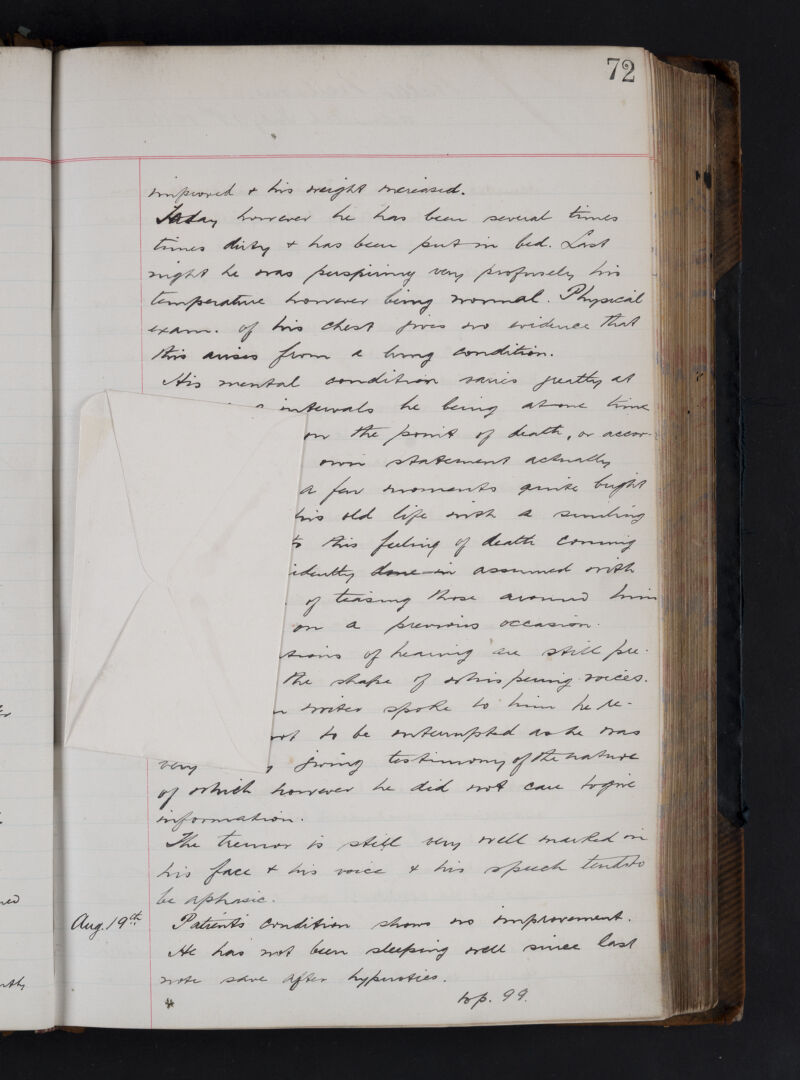 72
improved & his weight increased.
Today however he has been several times
times dirty & has been put in bed. Last
night he was perspiring very profusely his
temperature however being normal. Physical
exam. of his chest gives no evidence that
this arises from a lung condition.
His mental condition varies greatly at
intervals he being at one time
on the point of death, or accor-
own statement actually
a few moments quite bright
his old life with a smiling
this feeling of death coming
idently done in assumed with
of teasing those around him
on a previous occasion.
sions of hearing are still pre-
the shape of whispering voices.
writer spoke to him he re-
not to be interrupted as he was
very giving testimony of the nature
of which however he did not care to give
information.
The tremor is still very well marked in
his face & his voice & his speech tends to
be aphasic.
Aug. 19th Patient's condition shows no improvement.
He has not been sleeping well since last
note save after hypnotics.
to p. 99.